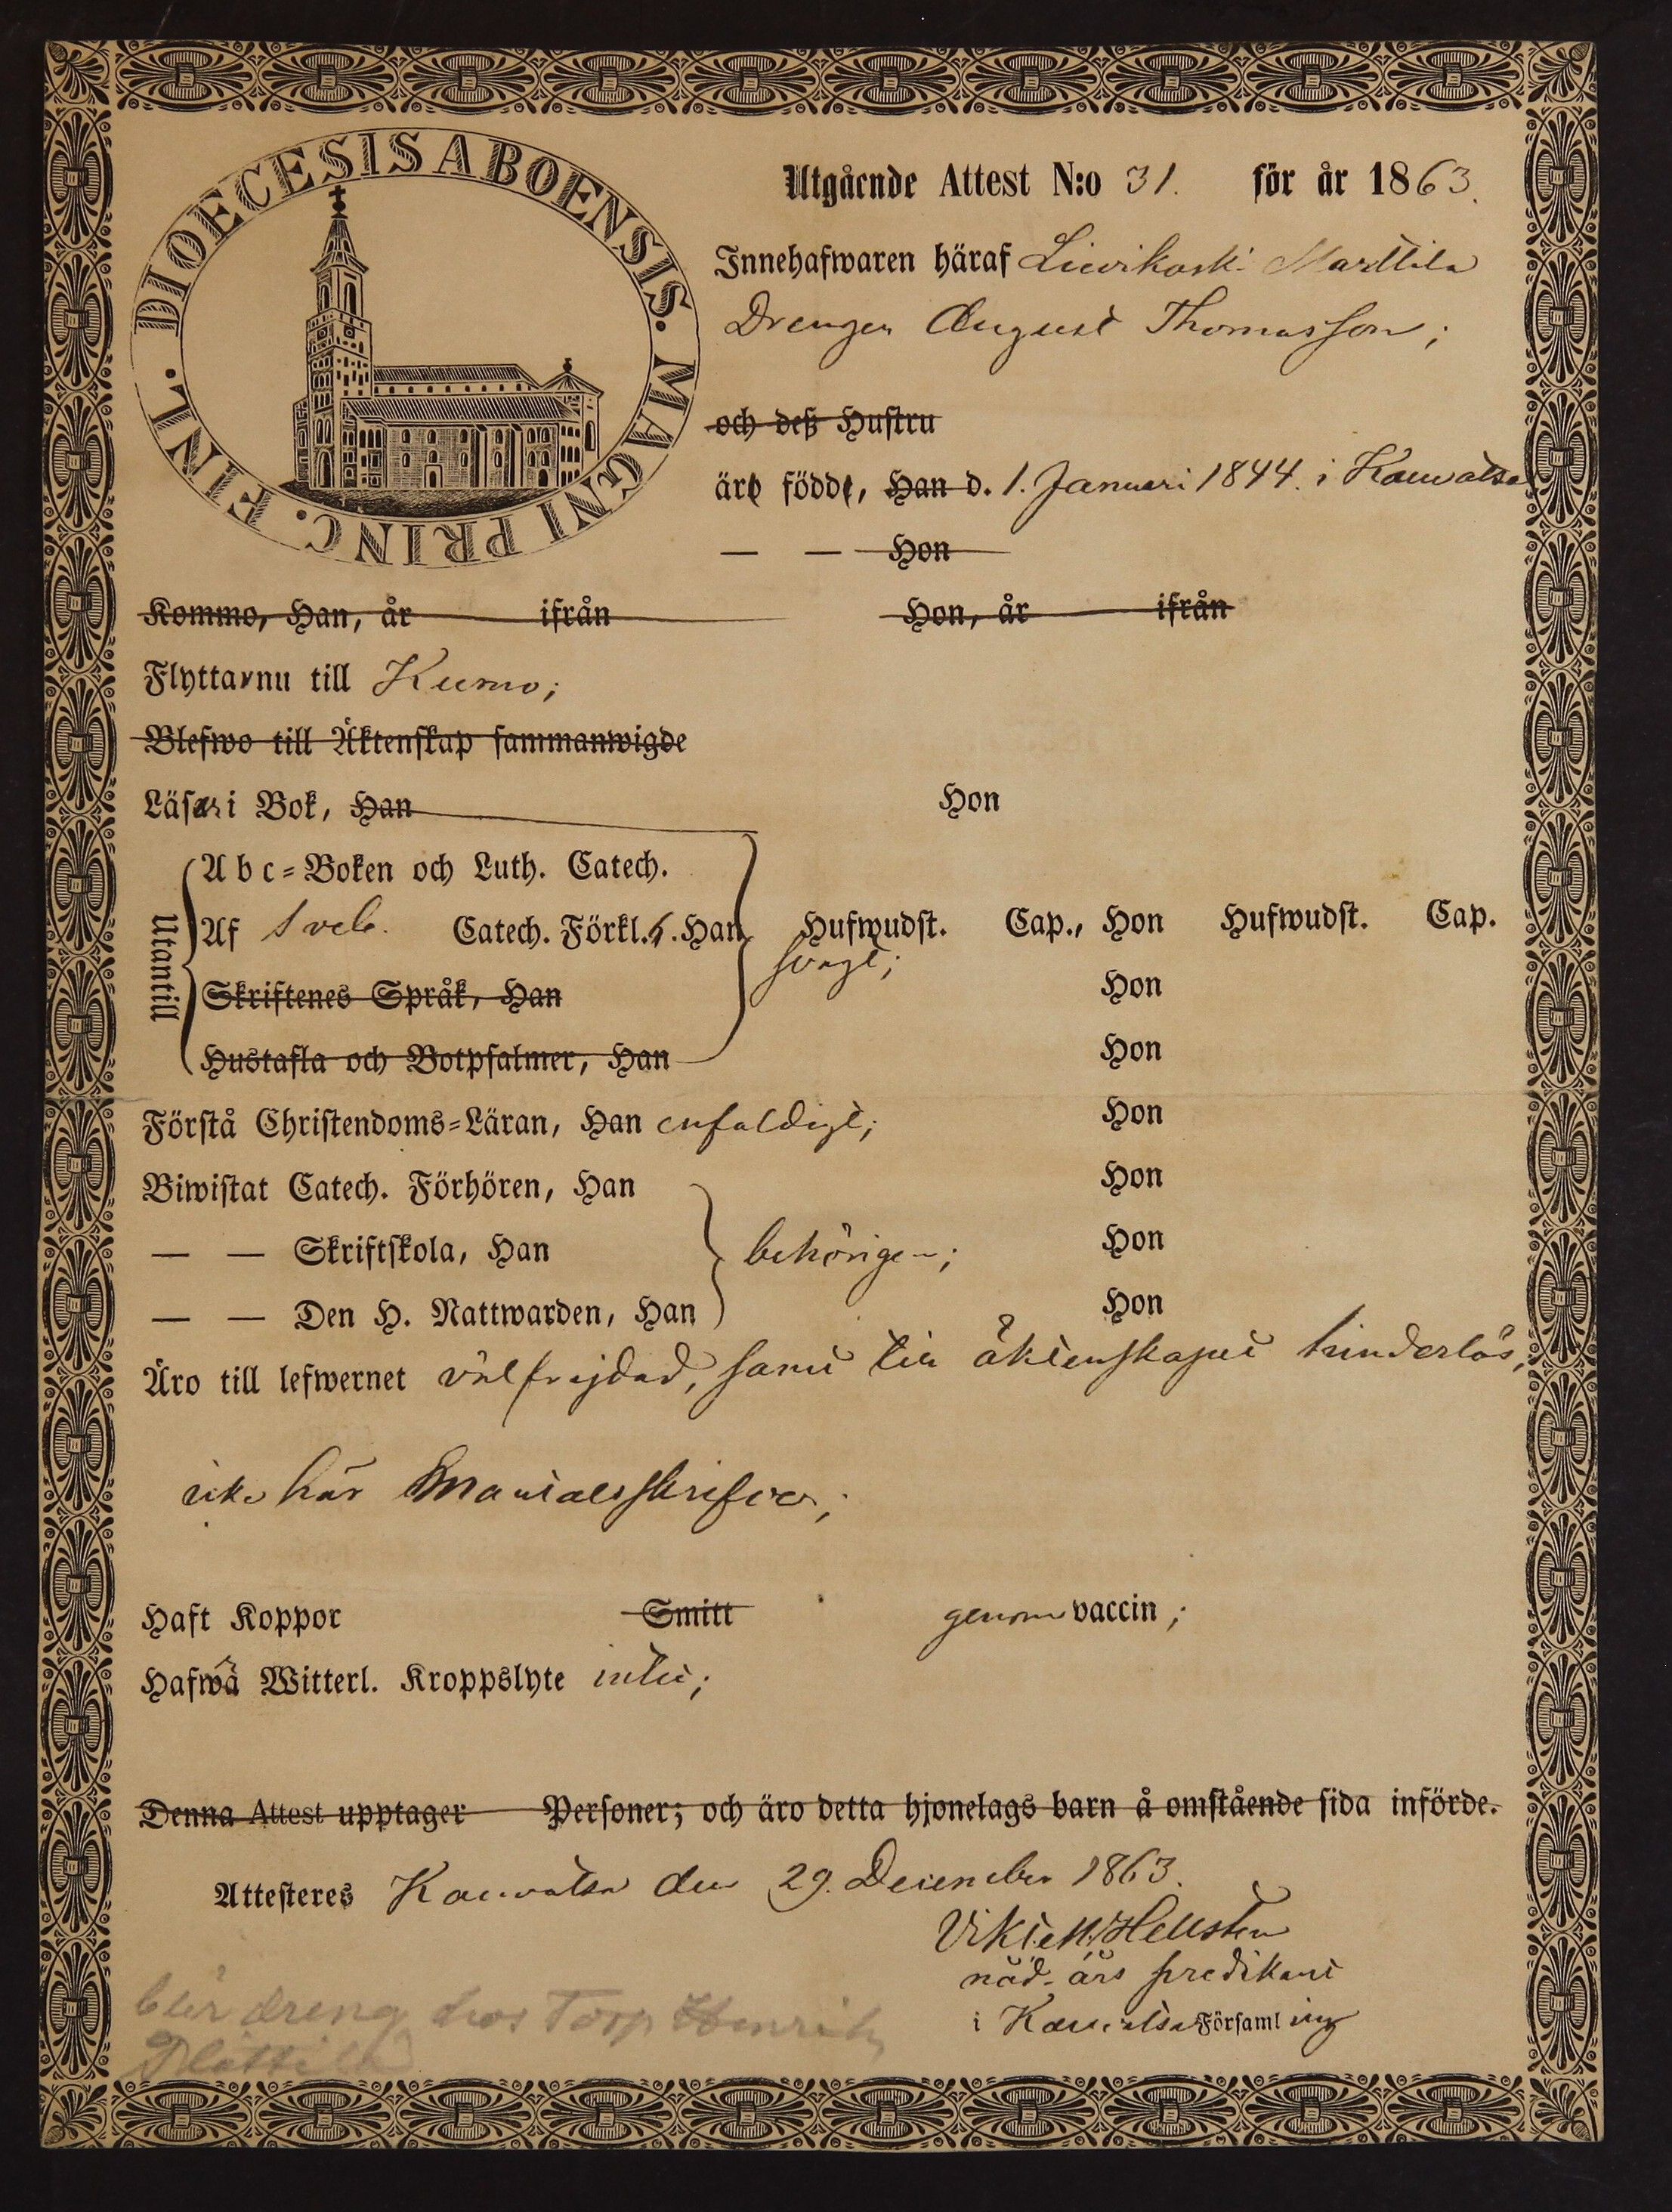 DIOECESIS ABOENSIS. MAGNI PRINC. FINL.
Utgående Attest N:o 31. för år 1863.
Innehafwaren häraf Liewikoski Marttila
Drengen August Thomasson;
och deß Hustru
äro födde, Han d. 1. Januari 1844. i Kauvatsa
— — Hon
Kommo, Han, år ifrån Hon, år ifrån
Flyttar nu till Kumo;
Blefwo till Äktenskap sammanwigde
Läser i Bok, Han Hon
Utantill
Abc-Boken och Luth. Catech.
Af Sveb. Catech. Förkl. Han Hufwudst. Cap., Hon Hufwudst. Cap.
svagt;
Skriftenes Språk, Han Hon
Hustafla och Botpsalmer, Han Hon
Förstå Christendoms-Läran, Han enfaldigt; Hon
Biwistat Catech. Förhören, Han Hon
— — Skriftskola, Han behörigen; Hon
— — Den H. Nattwarden, Han Hon
Äro till lefwernet välfrejdad, samt till äktenskapet hinderlös,
icke här Mantalsskrifven;
Haft Koppor Smitt genom vaccin;
Hafwa Witterl. Kroppslyte intet;
Denna Attest upptager Personer; och äro detta hjonelags barn å omstående sida införde.
Attesteres Kauvatsa den 29. December 1863.
Hellsten
nåd. års predikant
i Kauvatsa Församling
blir dreng hos Torp Henrik